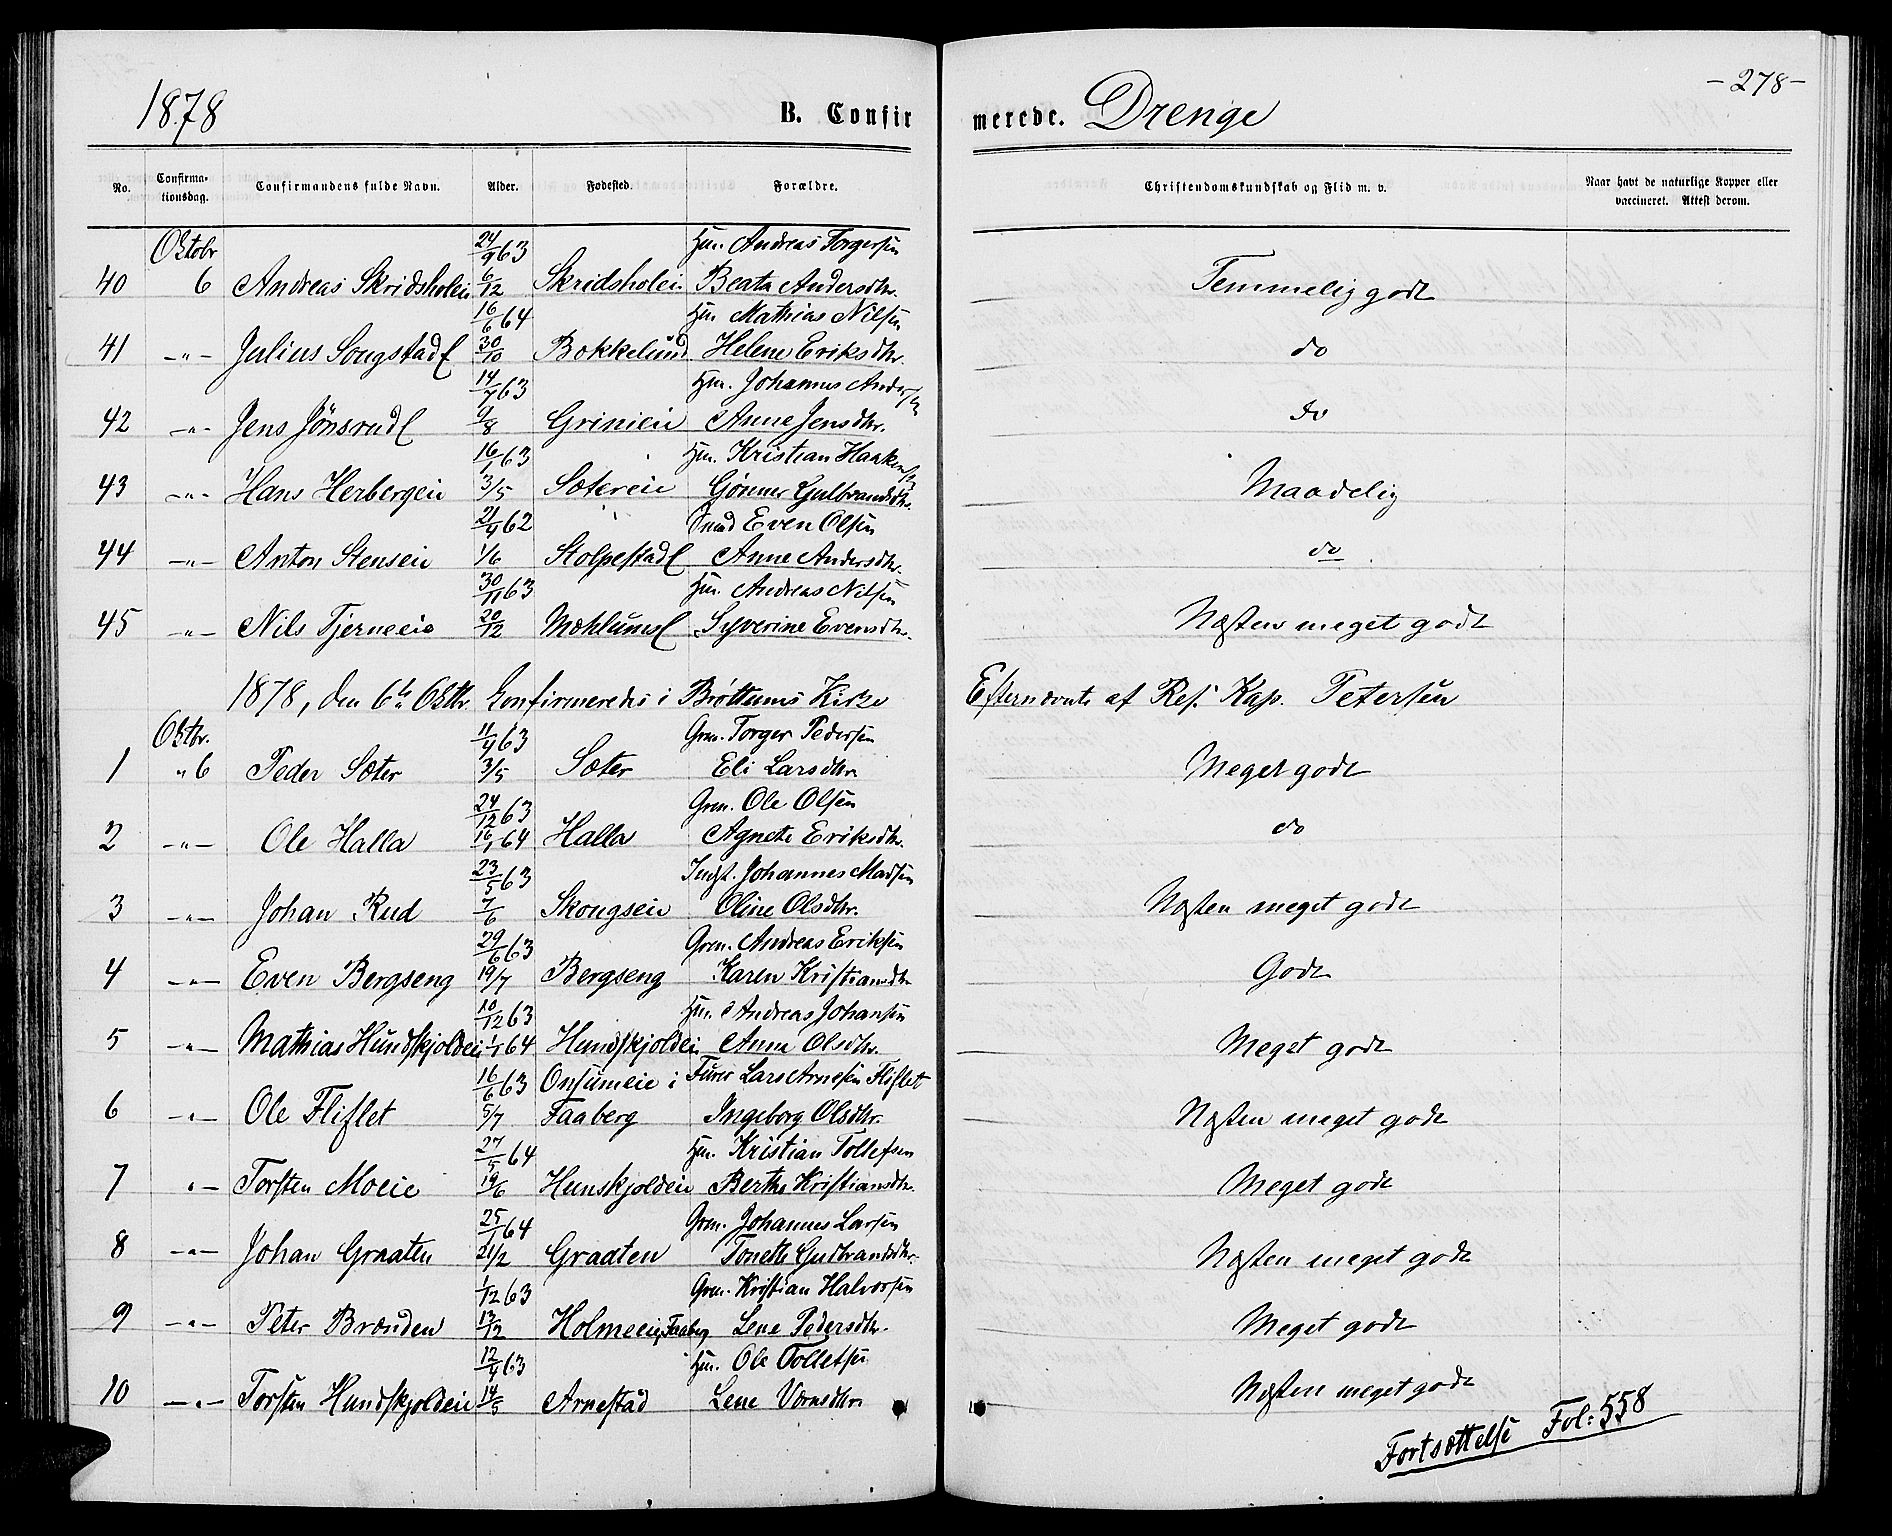 1878 B. Confirmerede. Drenge -278-
No. Confirmationsdag. Confirmandens fulde Navn. Alder. Fødested. Forældre. Christendomskundskab og Flid m. v. Naar havt de naturlige Kopper eller vaccineret. Attest derom.
Oktobr 24/9 63 Hm. Andreas Torgersen
40 6 Andreas Skridsholeie 6/12 Skridsholei Beata Andersdtr. Temmelig godt
16/6 64 Hm Mathias Nilsen
41 -"- Julius Songstad 30/10 Bokkelund Helene Eriksdtr. do
14/7 63 Hm. Johannes Andersen
42 -"- Jens Jønsrud 9/8 Grinieie Anne Jensdtr. do
16/1 63 Hm. Kristian Haakensen
43 -"- Hans Herbergeie 3/5 Sætereie Gønner Gulbrandsdtr. Maadelig
21/4 62 Even Olsen
44 -"- Anton Stenseie 1/6 Stolpestad Anne Andersdtr. do
30/11 63 Hm. Andreas Nilsen
45 -"- Nils Tjerneeie 20/12 Mæhlums Syverine Evensdtr. Næsten meget godt
1878, den 6te Oktbr. Konfirmeredes i Brøttums Kirke Efternævnte af Res. Kap. Petersen
Oktbr. 11/4 63 Grm. Torger Pedersen
1 " 6 Peder Sæter 3/5 Sæter Eli Larsdtr. Meget godt
24/12 63 Grm. Ole Olsen
2 -"- Ole Halla 16/1 64 Halla Agnete Eriksdtr. do
23/5 63 Ingst. Johannes Madsen
3 -"- Johan Rud 7/6 Skougseie Oline Olsdtr. Næsten meget godt
29/6 63 Grm. Andreas Eriksen
4 -"- Even Bergseng 19/7 Bergseng Karen Kristiansdtr. Godt
10/12 63 Hm. Andreas Johansen
5 -"- Mathias Hundskjoldeie 1/1 64 Hundskjoldeie Anne Olsdtr. Meget godt
16/6 63 Onsumeie i Furer Lars Arnesen Fliflet
6 -"- Ole Fliflet 5/7 Faaberg Ingeborg Olsdtr. Næsten meget godt
27/5 64 Hm. Kristian Tollefsen
7 "- Torsten Moeie 19/6 Hunskjoldeie Berthe Kristiansdtr. Meget godt
25/1 64 Grm. Johannes Larsen
8 -"- Johan Graaten 21/2 Graaten Tonette Gudbrandsdtr. Næsten meget godt
1/12 63 Grm. Kristian Halvorsen
9 -"- Peter Brænden 13/12 Holmeeie, Faaberg Lene Pedersdtr. Meget godt
12/4 63 Hm. Ole Tollefsen
10 -"- Torsten Hundskjoldeie 14/5 Arnestad Lene Vornsdtr. Næsten meget godt
Fortsættelse Fol: 558